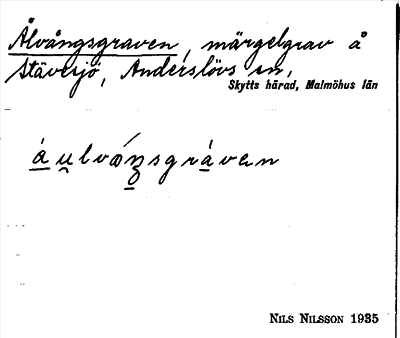 Ålvångsgraven, märgelgrav å
Stävesjö, Anderslövs sn,
Skytts härad, Malmöhus län
áu̯lváŋsgráven
NILS NILSSON 1935